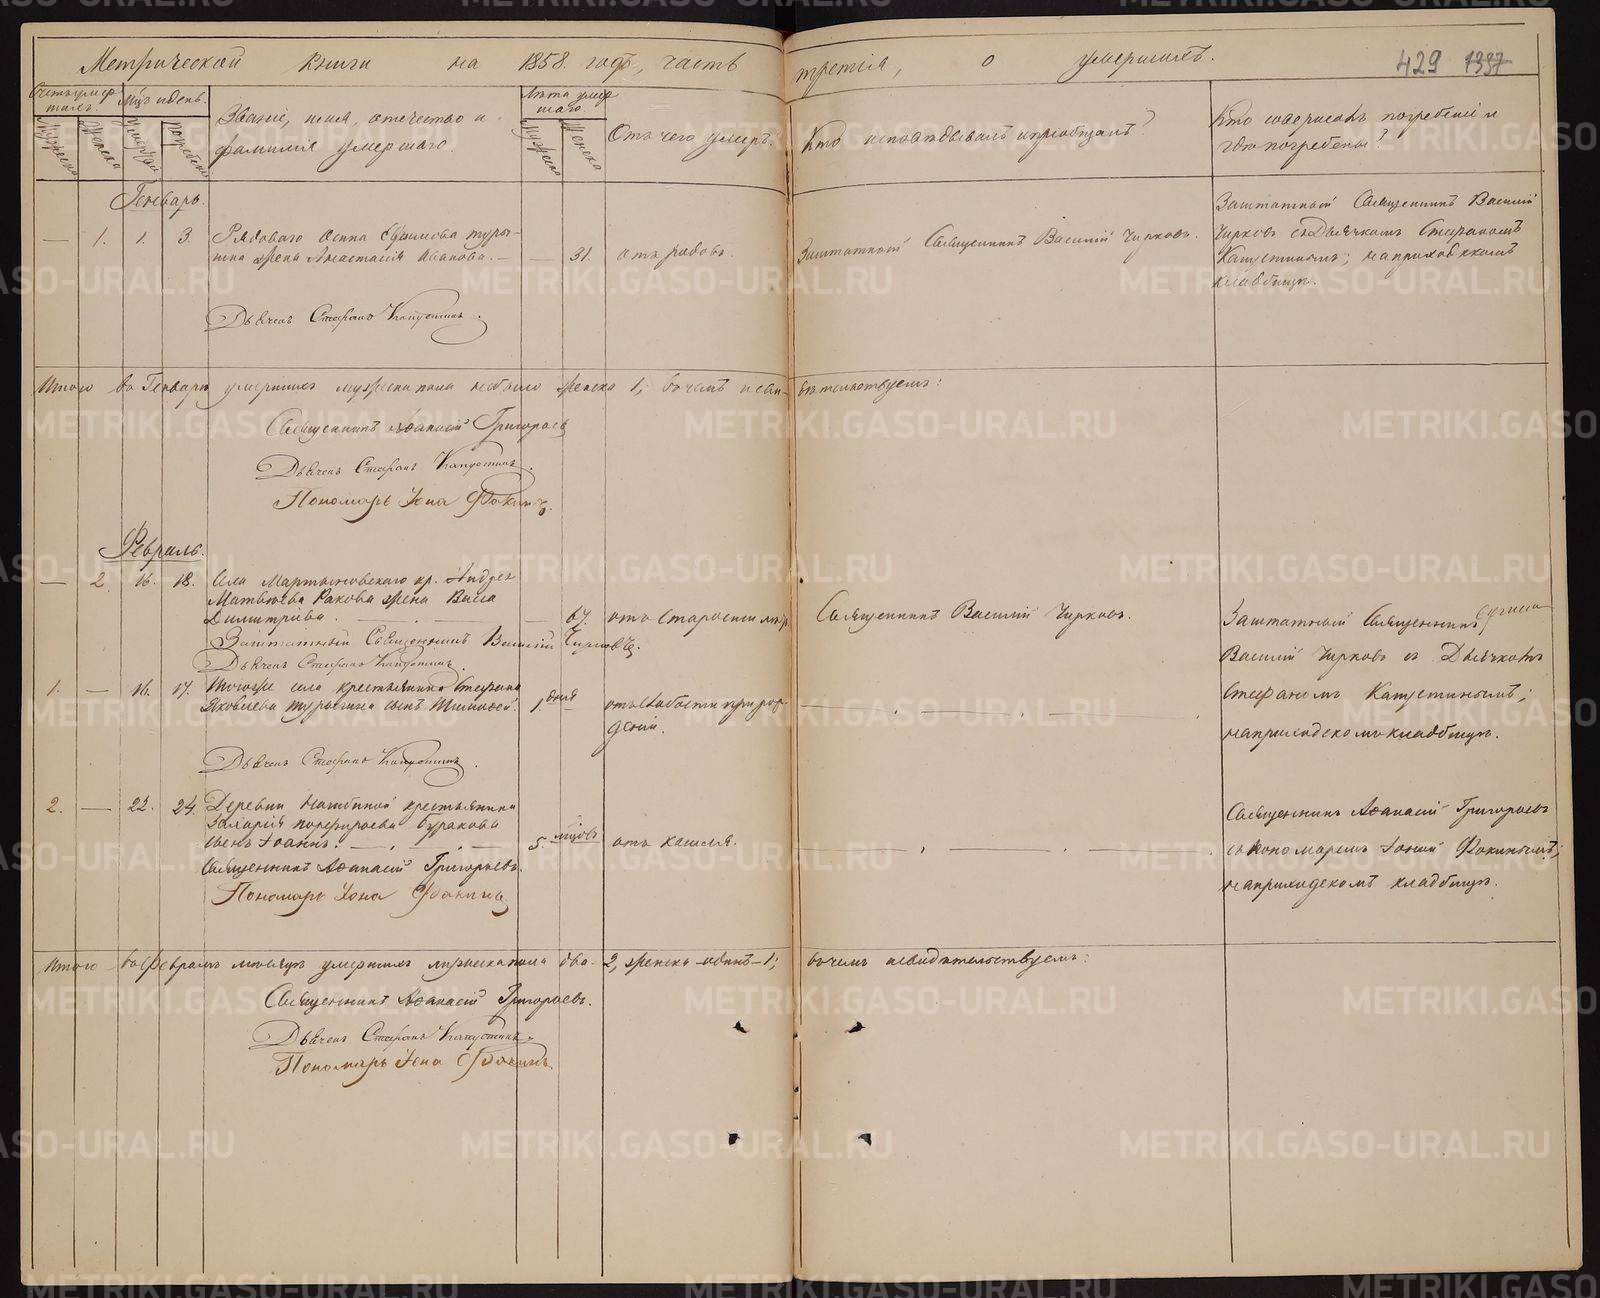 Метрической книги на 1858. годъ, часть третія, о умершихъ.
429 1337
Счетъ умер
шихъ.
Мужеска
Женска
Мцъ и день.
Умертвія
погребенія
Званіе, имя, отчество и
фамилія умершаго.
Лѣта умер
шаго.
Мужеска
Женска
Отъ чего умеръ.
Кто исповѣдывалъ и пріобщалъ?
Кто совершалъ погребеніе и
гдѣ погребены?
Генварь.
— 1. 1. 3. Рядоваго Осипа Ефимова туры-
гина жена Анастасія Иванова. — — 31. отъ родовъ.
Заштатный Священникъ Василій Чирковъ.
Заштатный Священникъ Василій
Чирковъ съ Дьячкомъ Стефаномъ
Капустинымъ; на приходскомъ
кладбищѣ.
Дьячекъ Стефанъ Капустинъ.
Итого въ Генварѣ умершихъ мужеска пола не было женска 1; въ чемъ и сви- дѣтельствуемъ:
Священникъ Аѳанасій Григорьевъ
Дьячекъ Стефанъ Капустинъ.
Пономарь Іона Фокинъ.
Февраль.
— 2. 16. 18. Села Мартыновскаго кр. Андрея
Матвѣева Ракова жена Васса
Димитріева. — 67. отъ старости
Священникъ Василій Чирковъ.
Заштатный Священникъ
Василій Чирковъ съ Дьячкомъ
Стефаномъ Капустинымъ;
на приходскомъ кладбищѣ.
Заштатный Священникъ Василій Чирковъ.
Дьячекъ Стефанъ Капустинъ.
1. — 16. 17. Тогоже села крестьянина Стефана
Яковлева турыгина сынъ Тимоѳей. 1 дня отъ слабости при рож-
деніи.
Дьячекъ Стефанъ Капустинъ.
2. — 22. 24. Деревни крестьянина
Захарія порфирьева Буракова
сынъ Іоаннъ. — 5. мцовъ отъ кашля.
Священникъ Аѳанасій Григорьевъ
съ пономаремъ Іоной Фокинымъ;
на приходскомъ кладбищѣ.
Священникъ Аѳанасій Григорьевъ.
Пономарь Іона Фокинъ
Итого въ Февралѣ мѣсяцѣ умершихъ мужеска пола два - 2, женска - одинъ - 1; въ чемъ и свидѣтельствуемъ:
Священникъ Аѳанасій Григорьевъ.
Дьячекъ Стефанъ Капустинъ.
Пономарь Іона Фокинъ.
METRIKI.GASO-URAL.RU